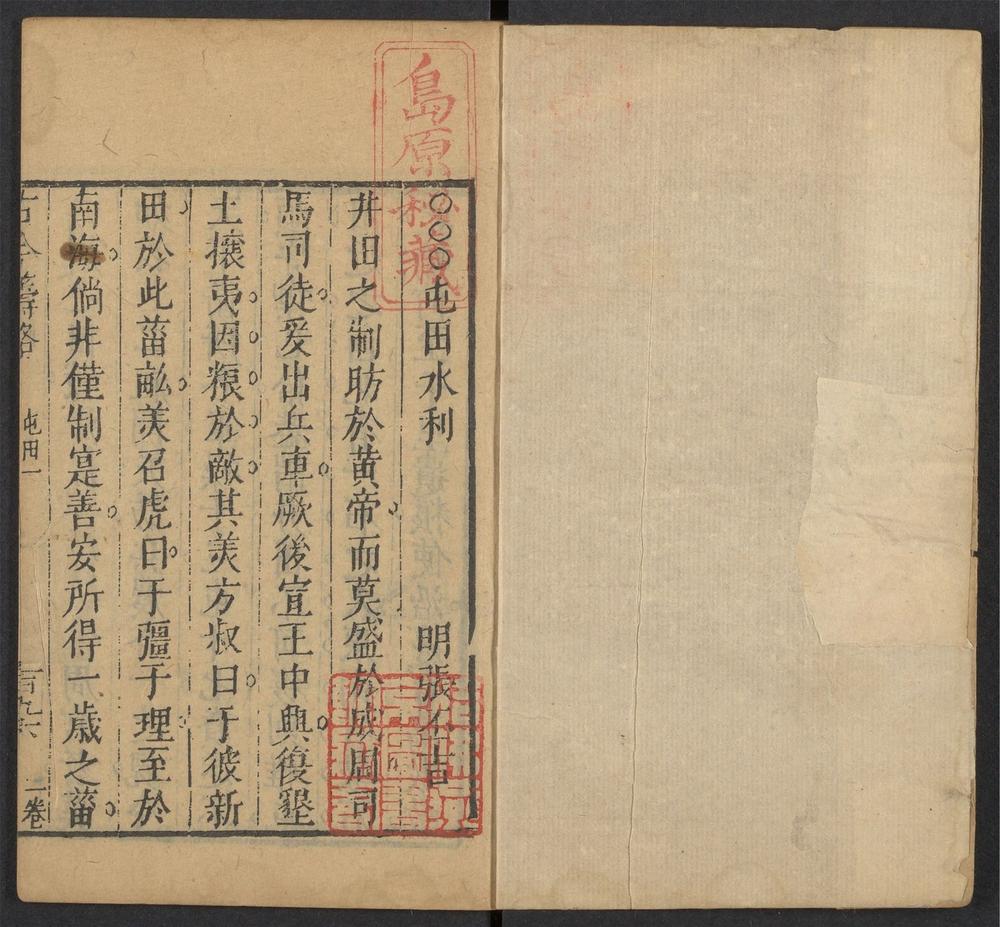 島原秘藏
○○○屯田水利 明張不吉
井田之制昉於黃帝而莫盛於成周司
馬司徒爰出兵車厥後宣王中興復墾
土攘夷因粮於敵其美方叔曰于彼新
田於此菑畝美召虎曰于疆于理至於
南海倘非僅制寔善安所得一歲之菑
古今籌略 屯田一 二卷